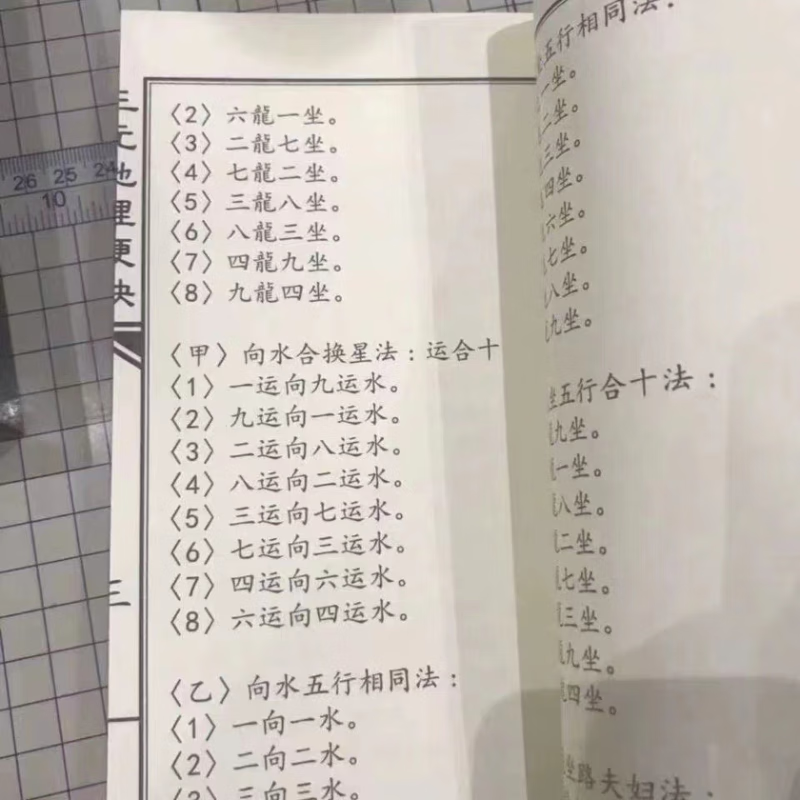 三元地理便决
三
〈2〉六龍一坐。
〈3〉二龍七坐。
〈4〉七龍二坐。
〈5〉三龍八坐。
〈6〉八龍三坐。
〈7〉四龍九坐。
〈8〉九龍四坐。
〈甲〉向水合换星法：运合十
〈1〉一运向九运水。
〈2〉九运向一运水。
〈3〉二运向八运水。
〈4〉八运向二运水。
〈5〉三运向七运水。
〈6〉七运向三运水。
〈7〉四运向六运水。
〈8〉六运向四运水。
〈乙〉向水五行相同法：
〈1〉一向一水。
〈2〉二向二水。
三向三水。
五行相同法：
一坐。
二坐。
三坐。
四坐。
六坐。
七坐。
八坐。
九坐。
坐五行合十法：
九坐。
一坐。
八坐。
二坐。
七坐。
三坐。
九坐。
四坐。
坐路夫妇法：
26 25 24
10